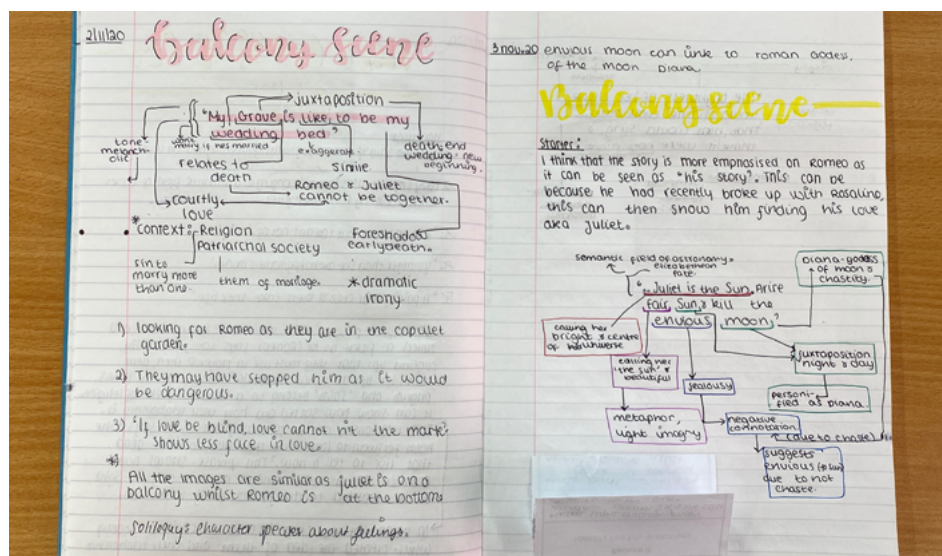 2/11/20
Balcony Scene
juxtaposition
"My Grave is like to be my
wedding bed"
tone-
melanch-
olic
exaggerate
simile
death, end
wedding - new
beginning.
relates to
death
Romeo & Juliet
cannot be together.
courtly
love
Foreshadow
early death.
* context: Religion
Patriarchal society
sin to
marry more
than one.
them of marriage.
* dramatic
irony.
1) looking for Romeo as they are in the capulet
garden.
2) They may have stopped him as it would
be dangerous.
3) "If love be blind, love cannot hit the mark"
shows less face in love.
All the images are similar as juliet is on a
balcony whilst Romeo is at the bottom
soliloquy: character speaks about feelings.
3 nov. 20 envious moon can link to roman godess.
of the moon Diana.
Balcony scene
Starter:
I think that the story is more emphasised on Romeo as
it can be seen as "his story". This can be
because he had recently broke up with Rosaline,
this can then show him finding his love
aka juliet.
semantic field of astronomy =
elizabethan
fate.
Diana-godess
of moon &
chastity.
"Juliet is the Sun. Arire
fair, Sun, & kill the
envious moon,"
calling her
bright & centre
of universe
calling her
'the sun' &
beautiful
jealousy
juxtaposition
night & day
personi-
fied as Diana.
metaphor,
light imagry
negative
connotation
(due to chaste)
suggests
envious (to sun)
due to not
chaste.